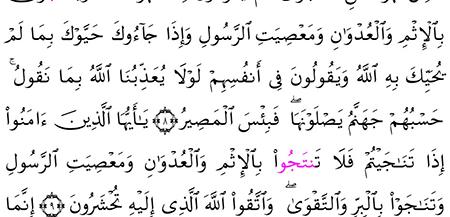 بِٱلْإِثْمِ وَٱلْعُدْوَٰنِ وَمَعْصِيَتِ ٱلرَّسُولِ وَإِذَا جَآءُوكَ حَيَّوْكَ بِمَا لَمْ
يُحَيِّكَ بِهِ ٱللَّهُ وَيَقُولُونَ فِىٓ أَنفُسِهِمْ لَوْلَا يُعَذِّبُنَا ٱللَّهُ بِمَا نَقُولُ ۚ
حَسْبُهُمْ جَهَنَّمُ يَصْلَوْنَهَا ۖ فَبِئْسَ ٱلْمَصِيرُ ﴿٨﴾ يَـٰٓأَيُّهَا ٱلَّذِينَ ءَامَنُوٓا۟
إِذَا تَنَـٰجَيْتُمْ فَلَا تَنتَجُوا۟ بِٱلْإِثْمِ وَٱلْعُدْوَٰنِ وَمَعْصِيَتِ ٱلرَّسُولِ
وَتَنَـٰجَوْا۟ بِٱلْبِرِّ وَٱلتَّقْوَىٰ ۖ وَٱتَّقُوا۟ ٱللَّهَ ٱلَّذِىٓ إِلَيْهِ تُحْشَرُونَ ﴿٩﴾ إِنَّمَا